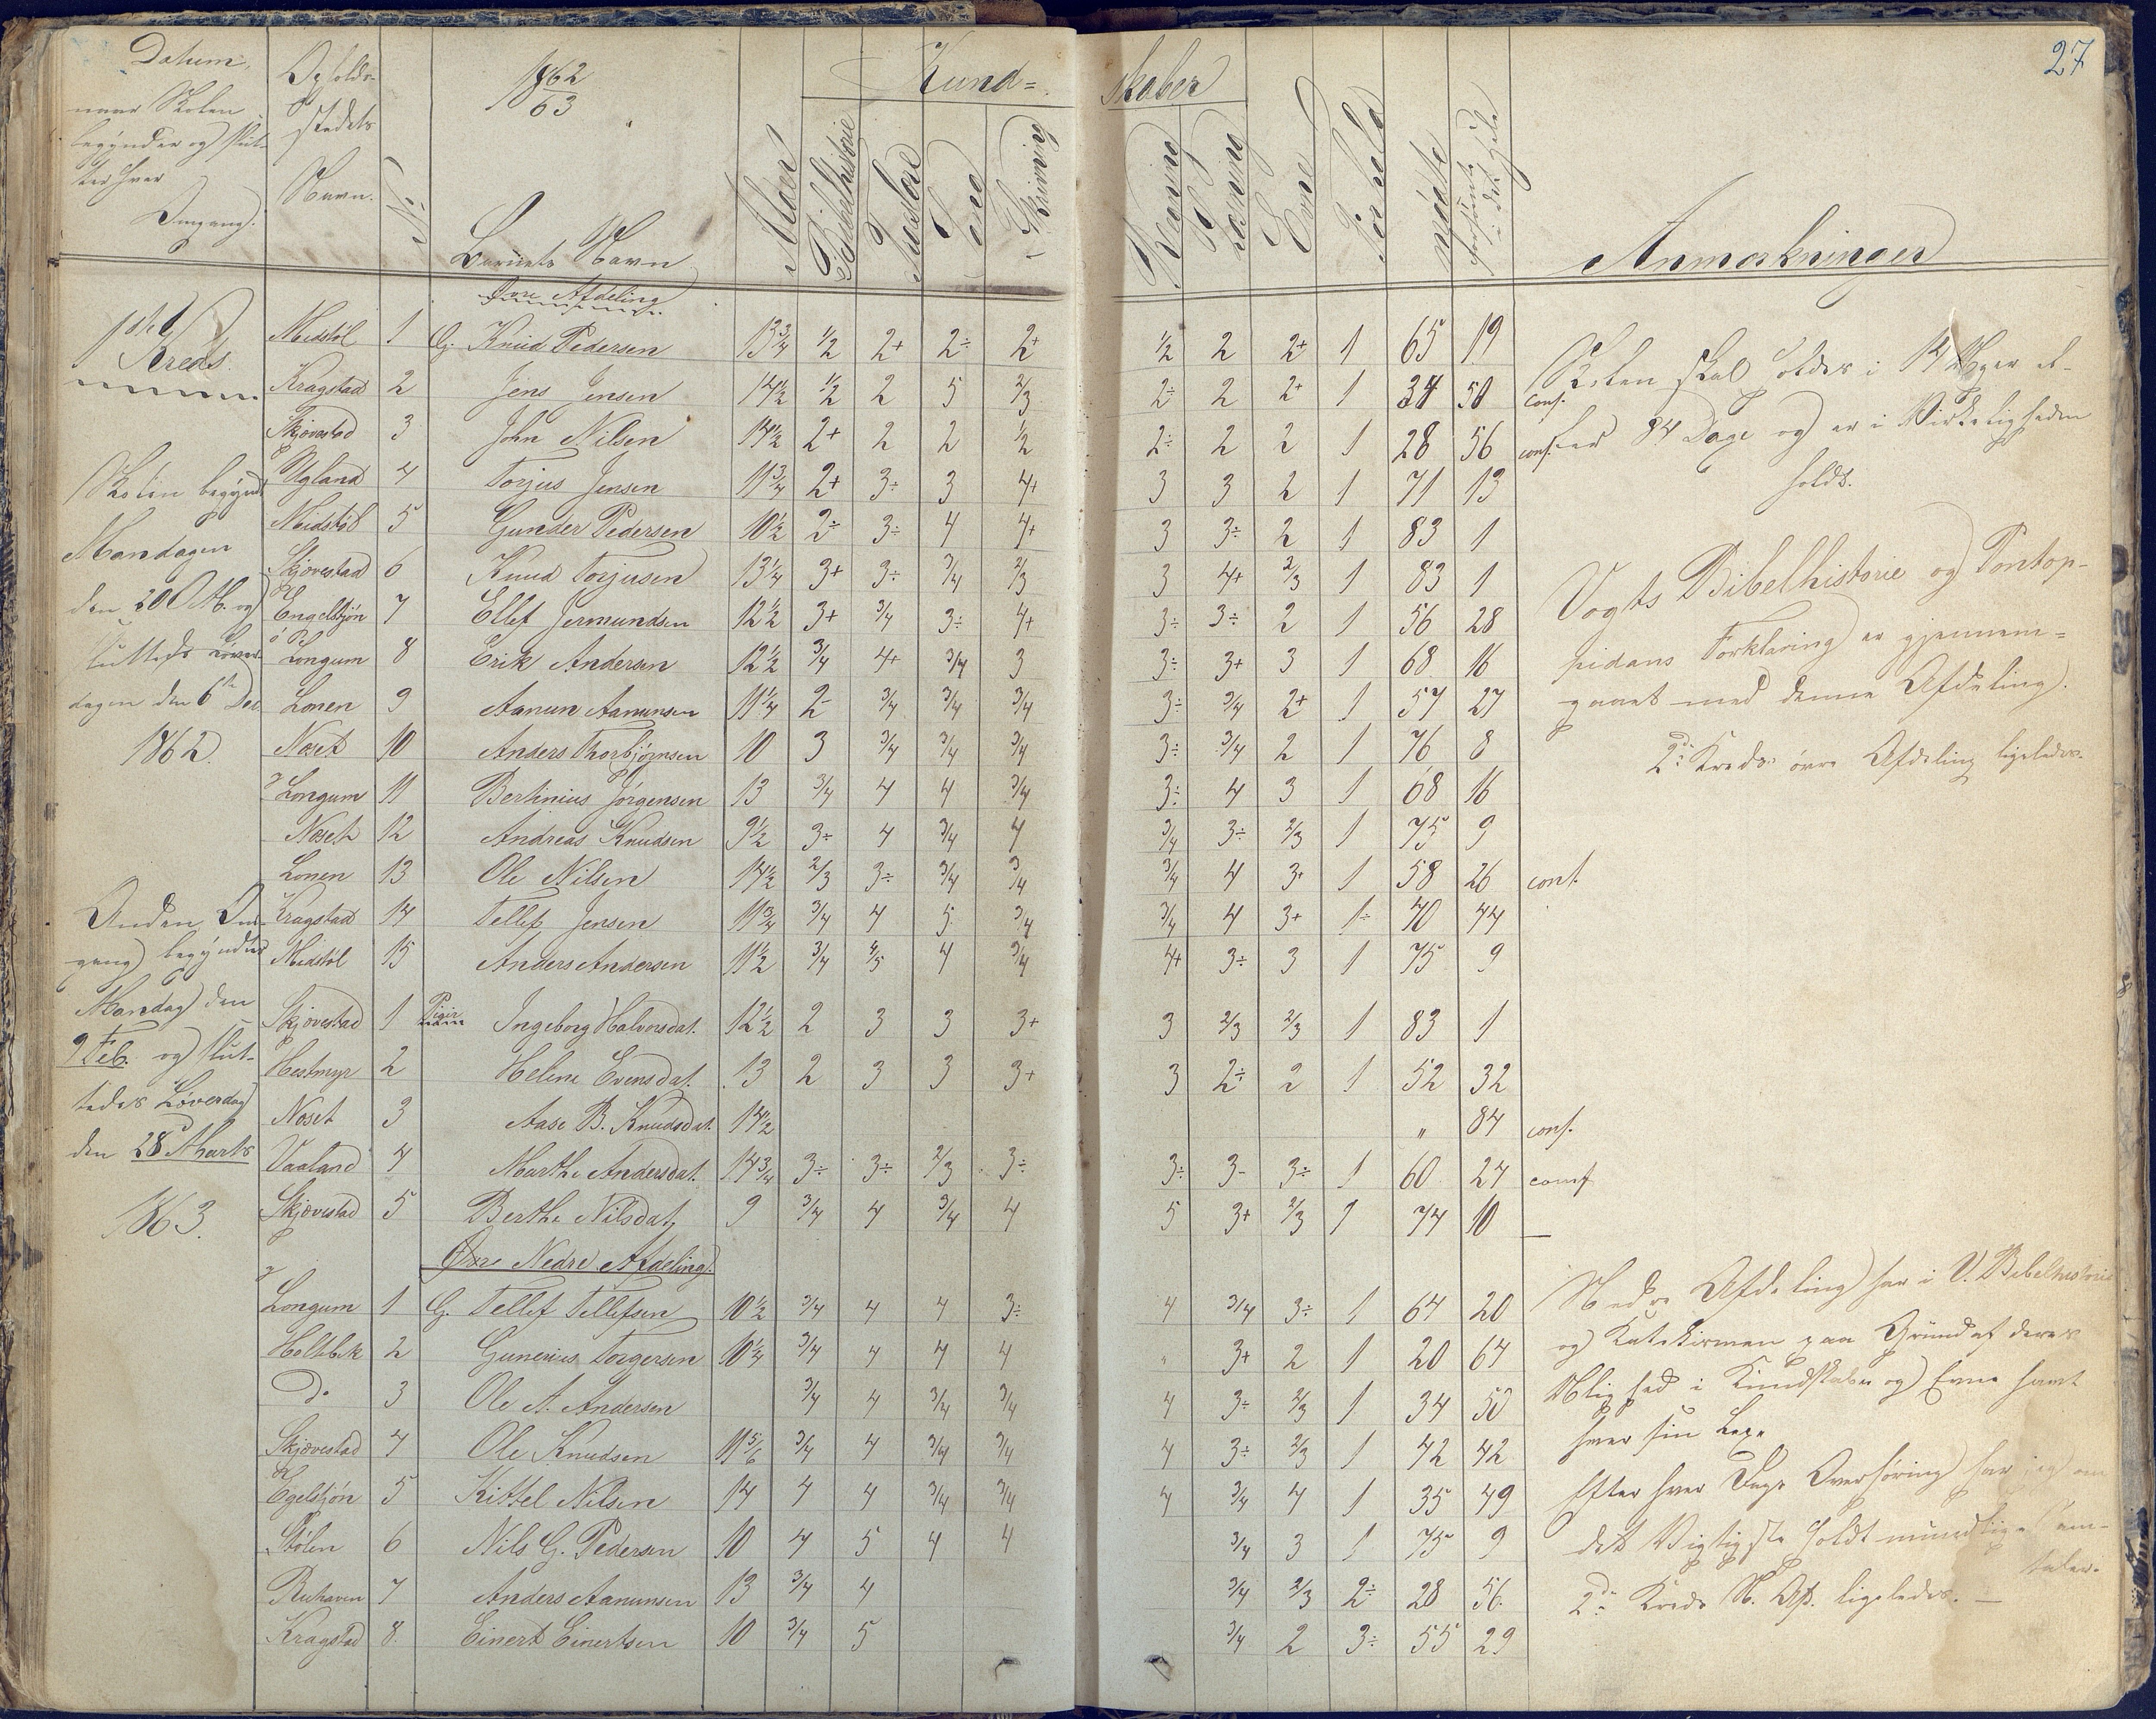 27
Datum,
naar Skolen
begynder og slut-
ter hver
Omgang.
Opholds-
stedets
Navn.
No
1862/63
Barnets Navn
Alder
Kund=
skaber
Bibelhistorie
Troeslære
Sang
Skrivning
Regning
Læsning
Evne
Forhold
mødte
forsømte i det Hele
Anmærkninger
Øvre Afdeling
1ste Kreds.
Midstøl 1 G. Knud Pedersen 13 3/4 1/2 2+ 2÷ 2+ 1/2 2 2+ 1 65 19
Kragstad 2 Jens Jensen 14 1/2 1/2 2 5 2/3 2÷ 2 2+ 1 34 50 conf.
Skjovestad 3 John Nilsen 14 1/2 2+ 2 2 1/2 2÷ 2 2 1 28 56 conf.
Ugland 4 Torjus Jensen 11 3/4 2+ 3÷ 3 4+ 3 3 2 1 71 13
Midstøl 5 Gunder Pedersen 10 1/2 2÷ 3÷ 4 4+ 3 3÷ 2 1 83 1
Skjovestad 6 Knud Torjusen 13 1/4 3+ 3÷ 3/4 2/3 3 4+ 2/3 1 83 1
Engelstjøn 7 Ellef Jermundsen 12 1/2 3+ 3/4 3÷ 4+ 3÷ 3÷ 2 1 56 28
Longum 8 Erik Andersen 12 1/2 3/4 4+ 3/4 3 3÷ 3+ 3 1 68 16
Lonen 9 Aanun Aanunsen 11 1/4 2- 3/4 3/4 3/4 3÷ 3/4 2+ 1 57 27
Næset 10 Anders Thorbjørnsen 10 3 3/4 3/4 3/4 3÷ 3/4 2 1 76 8
Longum 11 Bertinius Jørgensen 13 3/4 4 4 3/4 3÷ 4 3 1 68 16
Næset 12 Andreas Knudsen 9 1/2 3÷ 4 3/4 4 3/4 3÷ 2/3 1 75 9
Lonen 13 Ole Nilsen 14 1/2 2/3 3÷ 3/4 3/4 3/4 4 3+ 1 58 26 conf.
Kragstad 14 Tellef Jensen 11 3/4 3/4 4 5 3/4 3/4 4 3+ 1÷ 40 44
Midstøl 15 Anders Andersen 11 1/2 3/4 4/5 4 3/4 4+ 3÷ 3 1 75 9
Skjovestad 1 Piger Ingeborg Halvorsdat. 12 1/2 2 3 3 3+ 3 2/3 2/3 1 83 1
Hestmyr 2 Helene Evensdat. 13 2 3 3 3+ 3 2÷ 2 1 52 32
Næset 3 Aase B. Knudsdat. 14 1/2 " 84 conf.
Vaaland 4 Marthe Andersdat. 14 3/4 3÷ 3÷ 2/3 3÷ 3÷ 3- 3÷ 1 60 24 conf
Skjovestad 5 Berthe Nilsdat. 9 3/4 4 3/4 4 5 3+ 2/3 1 74 10 —
Øvre Nedre Afdeling.
Longum 1 G. Tellef Tellefsen 10 1/2 3/4 4 4 3÷ 4 3/4 3÷ 1 64 20
Holtbek 2 Gunerius Torgersen 10 1/4 3/4 4 4 4 " 3+ 2 1 20 64
Do 3 Ole A. Andersen 3/4 4 3/4 3/4 4 3÷ 2/3 1 34 50
Skjovestad 4 Ole Knudsen 11 5/6 3/4 4 3/4 3/4 4 3÷ 2/3 1 42 42
Egelstjøn 5 Kittel Nilsen 14 4 4 3/4 3/4 4 3/4 4 1 35 49
Stølen 6 Nils G. Pedersen 10 4 5 4 4 3/4 3 1 75 9
Ruhaven 7 Anders Aanunsen 13 3/4 4 3/4 2/3 2÷ 28 56
Kragstad 8. Einert Einertsen 10 3/4 5 3/4 2 3÷ 55 29
Skolen begyndt
Mandagen
den 20 Okt. og
sluttedes Løver-
dagen den 6te Dec.
1862.
Anden Om-
gang begyndtes
Mandag den
9 Feb. og slut-
tedes Løverdag
den 28 Marts
1863.
Skolen skal holdes i 14 Uger el-
ler 84 Dage og er i Virkeligheden
holdt.
Vogts Bibelhistorie og Pontop-
pidans Forklaring er gjennem=
gaaet med denne Afdeling.
2den Kreds øvre Afdeling ligeledes.
Nedre Afdeling har i V. Bibelhistorie
og Katekismen paa Grund af deres
Ulighed i Kundskaber og Evne havt
hver sin Lexe
Efter hver Dags Overhøring har jeg om
det Vigtigste holdt mundtlige Sam-
taler.
2den Kreds N. Afd. ligeledes. —